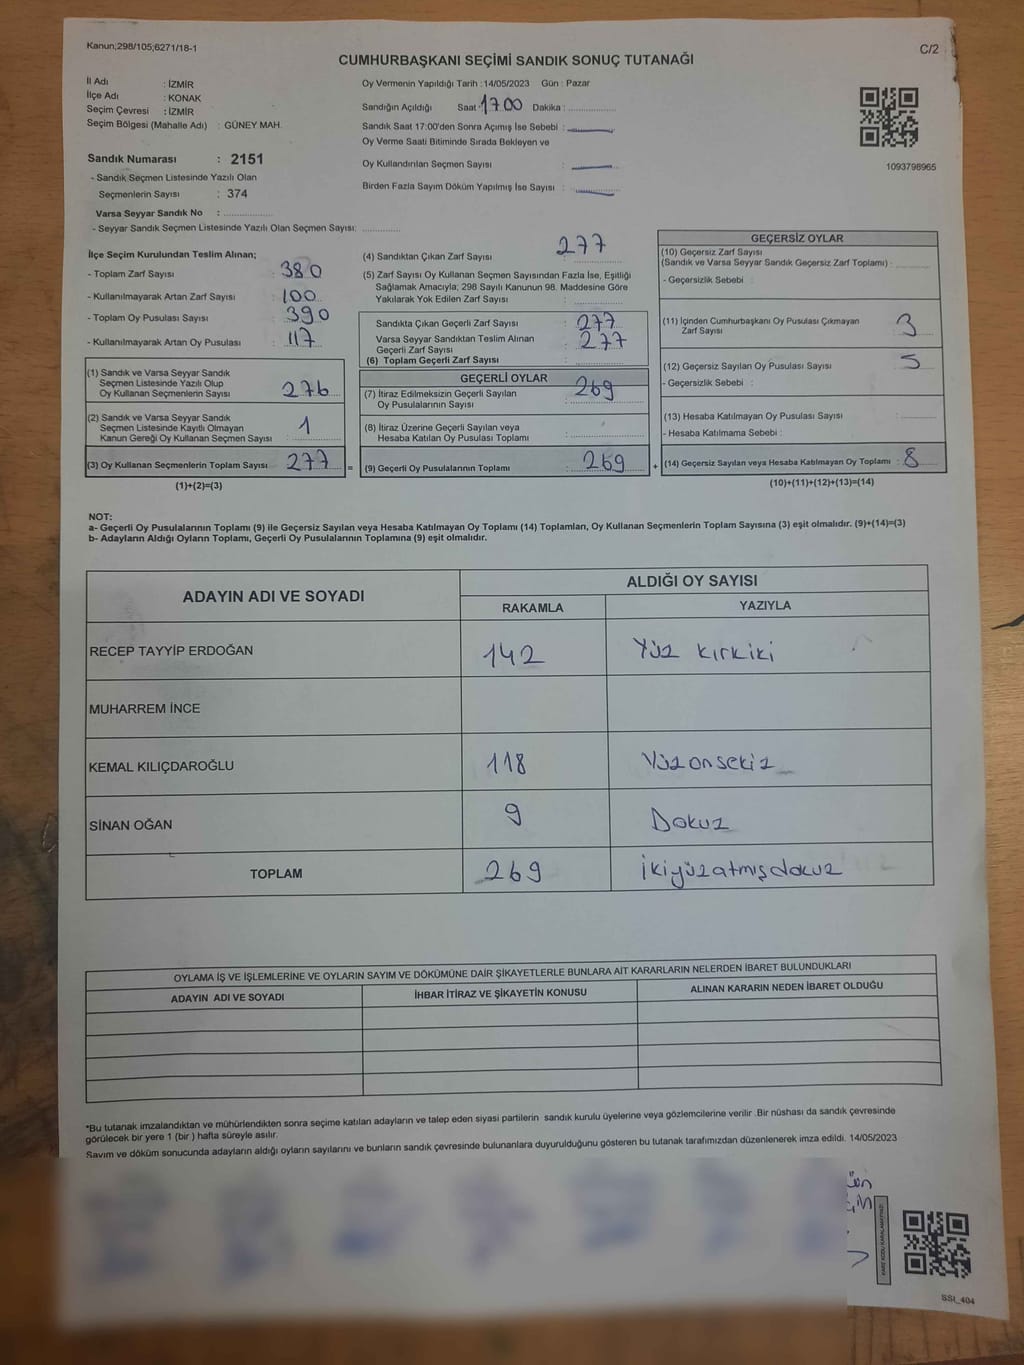 Kanun;298/105;6271/18-1
C/2
CUMHURBAŞKANI SEÇİMİ SANDIK SONUÇ TUTANAĞI
İl Adı : İZMİR
İlçe Adı : KONAK
Seçim Çevresi : İZMİR
Seçim Bölgesi (Mahalle Adı) : GÜNEY MAH.
Sandık Numarası : 2151
- Sandık Seçmen Listesinde Yazılı Olan
Seçmenlerin Sayısı : 374
Varsa Seyyar Sandık No : ....................
- Seyyar Sandık Seçmen Listesinde Yazılı Olan Seçmen Sayısı: ..............
Oy Vermenin Yapıldığı Tarih : 14/05/2023 Gün : Pazar
Sandığın Açıldığı Saat 17.00 Dakika : ..................
Sandık Saat 17:00'den Sonra Açımış İse Sebebi :
Oy Verme Saati Bitiminde Sırada Bekleyen ve
Oy Kullandırılan Seçmen Sayısı :
Birden Fazla Sayım Döküm Yapılmış İse Sayısı :
1093798965
İlçe Seçim Kurulundan Teslim Alınan;
- Toplam Zarf Sayısı : 380
- Kullanılmayarak Artan Zarf Sayısı : 100
- Toplam Oy Pusulası Sayısı : 390
- Kullanılmayarak Artan Oy Pusulası : 117
(1) Sandık ve Varsa Seyyar Sandık
Seçmen Listesinde Yazılı Olup
Oy Kullanan Seçmenlerin Sayısı : 276
(2) Sandık ve Varsa Seyyar Sandık
Seçmen Listesinde Kayıtlı Olmayan
Kanun Gereği Oy Kullanan Seçmen Sayısı : 1
(3) Oy Kullanan Seçmenlerin Toplam Sayısı : 277
(1)+(2)=(3)
=
(4) Sandıktan Çıkan Zarf Sayısı : 277
(5) Zarf Sayısı Oy Kullanan Seçmen Sayısından Fazla İse, Eşitliği
Sağlamak Amacıyla; 298 Sayılı Kanunun 98. Maddesine Göre
Yakılarak Yok Edilen Zarf Sayısı :
Sandıkta Çıkan Geçerli Zarf Sayısı : 277
Varsa Seyyar Sandıktan Teslim Alınan : 277
Geçerli Zarf Sayısı
(6) Toplam Geçerli Zarf Sayısı :
GEÇERLİ OYLAR
(7) İtiraz Edilmeksizin Geçerli Sayılan : 269
Oy Pusulalarının Sayısı
(8) İtiraz Üzerine Geçerli Sayılan veya
Hesaba Katılan Oy Pusulası Toplamı :
(9) Geçerli Oy Pusulalarının Toplamı : 269
+
GEÇERSİZ OYLAR
(10) Geçersiz Zarf Sayısı
(Sandık ve Varsa Seyyar Sandık Geçersiz Zarf Toplamı) :
- Geçersizlik Sebebi :
(11) İçinden Cumhurbaşkanı Oy Pusulası Çıkmayan
Zarf Sayısı : 3
(12) Geçersiz Sayılan Oy Pusulası Sayısı : 5
- Geçersizlik Sebebi :
(13) Hesaba Katılmayan Oy Pusulası Sayısı :
- Hesaba Katılmama Sebebi :
(14) Geçersiz Sayılan veya Hesaba Katılmayan Oy Toplamı : 8
(10)+(11)+(12)+(13)=(14)
NOT:
a- Geçerli Oy Pusulalarının Toplamı (9) ile Geçersiz Sayılan veya Hesaba Katılmayan Oy Toplamı (14) Toplamları, Oy Kullanan Seçmenlerin Toplam Sayısına (3) eşit olmalıdır. (9)+(14)=(3)
b- Adayların Aldığı Oyların Toplamı, Geçerli Oy Pusulalarının Toplamına (9) eşit olmalıdır.
ADAYIN ADI VE SOYADI
ALDIĞI OY SAYISI
RAKAMLA YAZIYLA
RECEP TAYYİP ERDOĞAN 142 Yüz kırkiki
MUHARREM İNCE
KEMAL KILIÇDAROĞLU 118 Yüzonsekiz
SİNAN OĞAN 9 Dokuz
TOPLAM 269 ikiyüzatmışdokuz
OYLAMA İŞ VE İŞLEMLERİNE VE OYLARIN SAYIM VE DÖKÜMÜNE DAİR ŞİKAYETLERLE BUNLARA AİT KARARLARIN NELERDEN İBARET BULUNDUKLARI
ADAYIN ADI VE SOYADI İHBAR İTİRAZ VE ŞİKAYETİN KONUSU ALINAN KARARIN NEDEN İBARET OLDUĞU
*Bu tutanak imzalandıktan ve mühürlendikten sonra seçime katılan adayların ve talep eden siyasi partilerin sandık kurulu üyelerine veya gözlemcilerine verilir .Bir nüshası da sandık çevresinde
görülecek bir yere 1 (bir ) hafta süreyle asılır.
Sayım ve döküm sonucunda adayların aldığı oyların sayılarını ve bunların sandık çevresinde bulunanlara duyurulduğunu gösteren bu tutanak tarafımızdan düzenlenerek imza edildi. 14/05/2023
KARE KODU KARALAMAYINIZ!
SSt_404